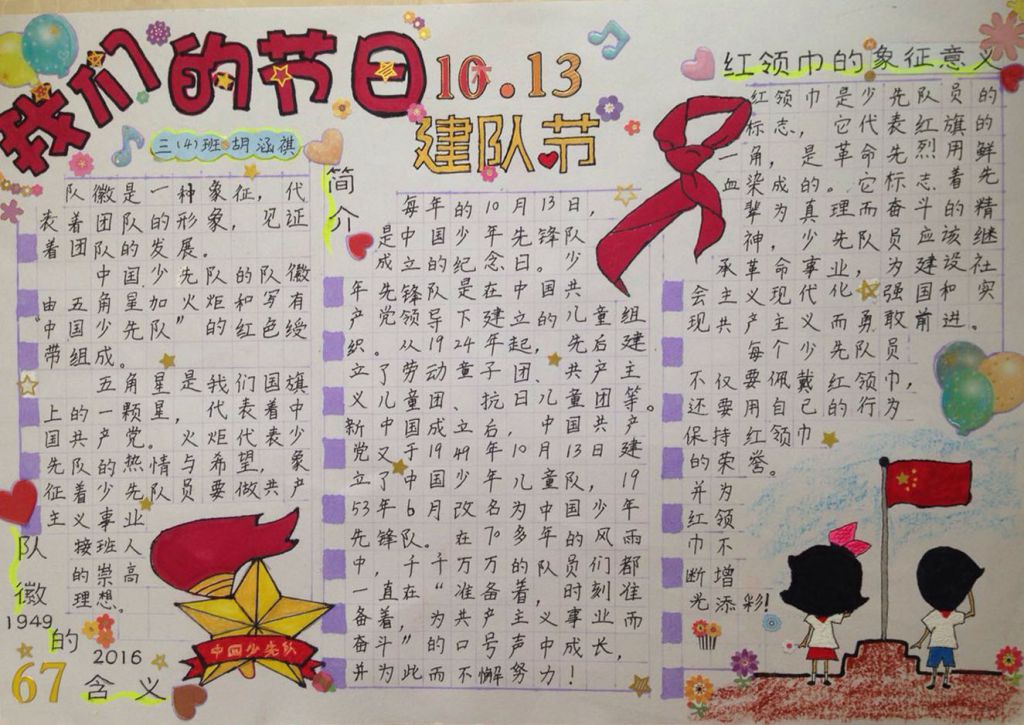 我们的节日
10.13
建队节
三(4)班 胡涵祺
队徽是一种象征，代
表着团队的形象，见证
着团队的发展。
中国少先队的队徽
由五角星加火炬和写有
“中国少先队”的红色绶
带组成。
五角星是我们国旗
上的一颗星，代表着中
国共产党。火炬代表少
先队的热情与希望，象
征着少先队员要做共产
主义事业
接班人
的崇高
理想。
队徽的含义
1949
2016
67
中国少先队
简介
每年的10月13日，
是中国少年先锋队
成立的纪念日。少
年先锋队是在中国共
产党领导下建立的儿童组
织。从1924年起，先后建
立了劳动童子团、共产主
义儿童团、抗日儿童团等。
新中国成立后，中国共产
党又于1949年10月13日建
立了中国少年儿童队，19
53年6月改名为中国少年
先锋队。在70多年的风雨
中，千千万万的队员们都
一直在“准备着，时刻准
备着，为共产主义事业而
奋斗”的口号声中成长，
并为此而不懈努力！
红领巾的象征意义
红领巾是少先队员的
标志，它代表红旗的
一角，是革命先烈用鲜
血染成的。它标志着先
辈为真理而奋斗的精
神，少先队员应该继
承革命事业，为建设社
会主义现代化强国和实
现共产主义而勇敢前进。
每个少先队员
不仅要佩戴红领巾，
还要用自己的行为
保持红领巾
的荣誉。
并为
红领
巾不
断增
光添彩！